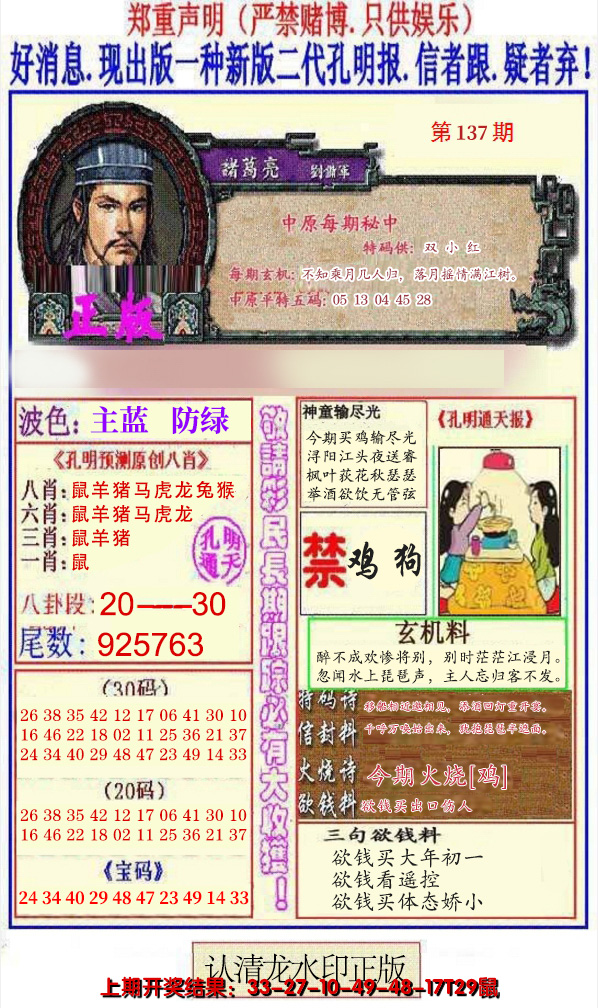 郑重声明（严禁赌博.只供娱乐）
好消息.现出版一种新版二代孔明报.信者跟.疑者弃!
第137期
諸葛亮 劉備軍
中原每期秘中
特码供: 双小红
每期玄机: 不知乘月几人归，落月摇情满江树。
中原平特五码: 05 13 04 45 28
正版
波色: 主蓝 防绿
《孔明预测原创八肖》
八肖: 鼠羊猪马虎龙兔猴
六肖: 鼠羊猪马虎龙
三肖: 鼠羊猪
一肖: 鼠
孔明
通天
八卦段: 20——30
尾数: 925763
（30码）
26 38 35 42 12 17 06 41 30 10
16 46 22 18 02 11 25 36 21 37
24 34 40 29 48 47 23 49 14 33
（20码）
26 38 35 42 12 17 06 41 30 10
16 46 22 18 02 11 25 36 21 37
《宝码》
24 34 40 29 48 47 23 49 14 33
敬請彩民長期跟踪必有大收獲！
神童输尽光
今期买鸡输尽光
浔阳江头夜送睿
枫叶荻花秋瑟瑟
举酒欲饮无管弦
《孔明通天报》
禁 鸡 狗
玄机料
醉不成欢惨将别，别时茫茫江浸月。
忽闻水上琵琶声，主人忘归客不发。
特码诗 移船相近邀相见，添酒回灯重开宴。
信封料 千呼万唤始出来，犹抱琵琶半遮面。
火烧诗 今期火烧[鸡]
欲钱料 欲钱买出口伤人
三句欲钱料
欲钱买大年初一
欲钱看遥控
欲钱买体态娇小
认清龙水印正版
上期开奖结果：33-27-10-49-48-17T29鼠